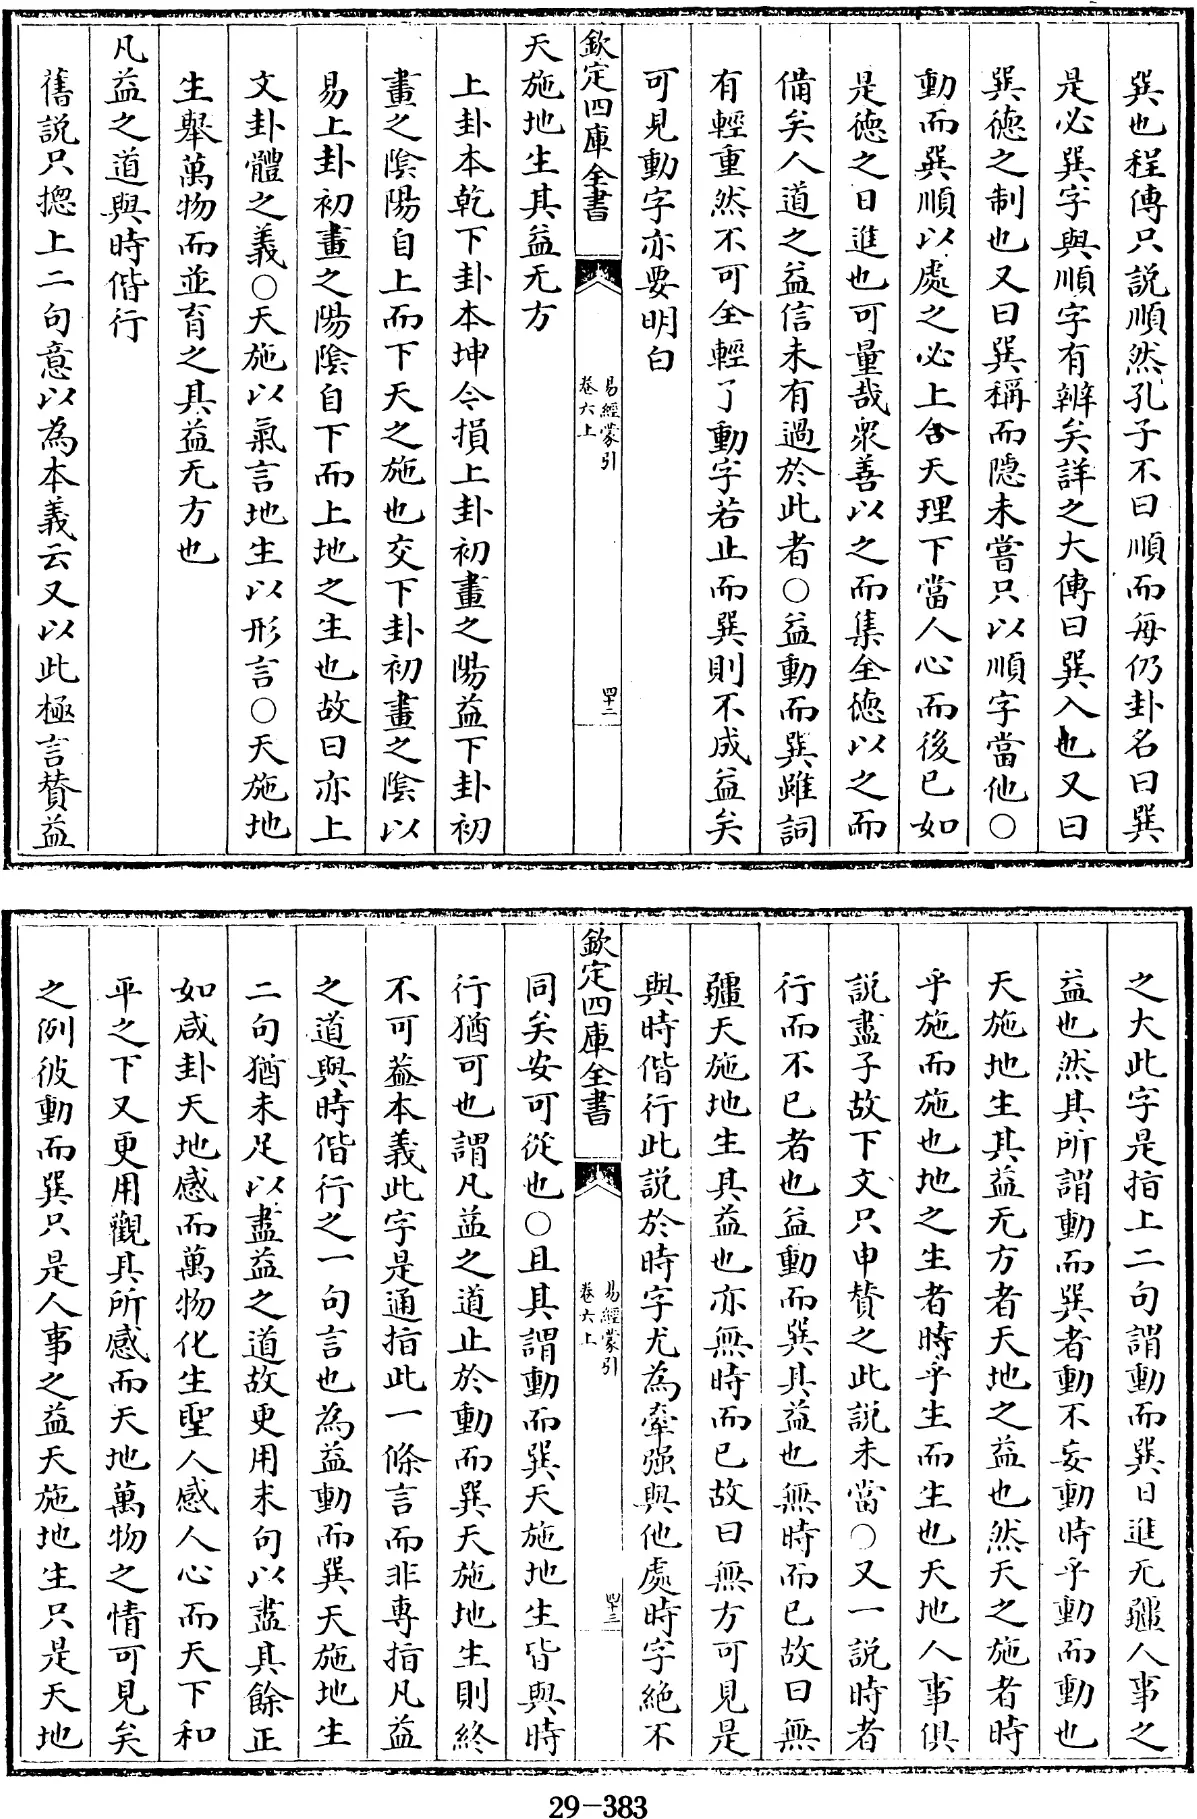 巽也程傳只説順然孔子不曰順而每仍卦名曰巽
是必巽字與順字有辨矣詳之大傳曰巽入也又曰
巽德之制也又曰巽稱而隱未嘗只以順字當他○
動而巽順以處之必上合天理下當人心而後已如
是德之日進也可量哉衆善以之而集全德以之而
備矣人道之益信未有過於此者○益動而巽雖詞
有輕重然不可全輕了動字若止而巽則不成益矣
可見動字亦要明白
欽定四庫全書
易經蒙引
卷六上
四十二
天施地生其益无方
上卦本乾下卦本坤今損上卦初畫之陽益下卦初
畫之陰陽自上而下天之施也交下卦初畫之陰以
易上卦初畫之陽陰自下而上地之生也故曰亦上
文卦體之義○天施以氣言地生以形言○天施地
生舉萬物而並育之其益无方也
凡益之道與時偕行
舊説只摠上二句意以為本義云又以此極言賛益
之大此字是指上二句謂動而巽日進无疆人事之
益也然其所謂動而巽者動不妄動時乎動而動也
天施地生其益无方者天地之益也然天之施者時
乎施而施也地之生者時乎生而生也天地人事俱
説盡子故下文只申賛之此説未當○又一説時者
行而不已者也益動而巽其益也無時而已故曰無
疆天施地生其益也亦無時而已故曰無方可見是
與時偕行此説於時字尤為牽强與他處時字絶不
欽定四庫全書
易經蒙引
卷六上
四十三
同矣安可從也○且其謂動而巽天施地生皆與時
行猶可也謂凡益之道止於動而巽天施地生則終
不可葢本義此字是通指此一條言而非專指凡益
之道與時偕行之一句言也為益動而巽天施地生
二句猶未足以盡益之道故更用末句以盡其餘正
如咸卦天地感而萬物化生聖人感人心而天下和
平之下又更用觀其所感而天地萬物之情可見矣
之例彼動而巽只是人事之益天施地生只是天地
29-383